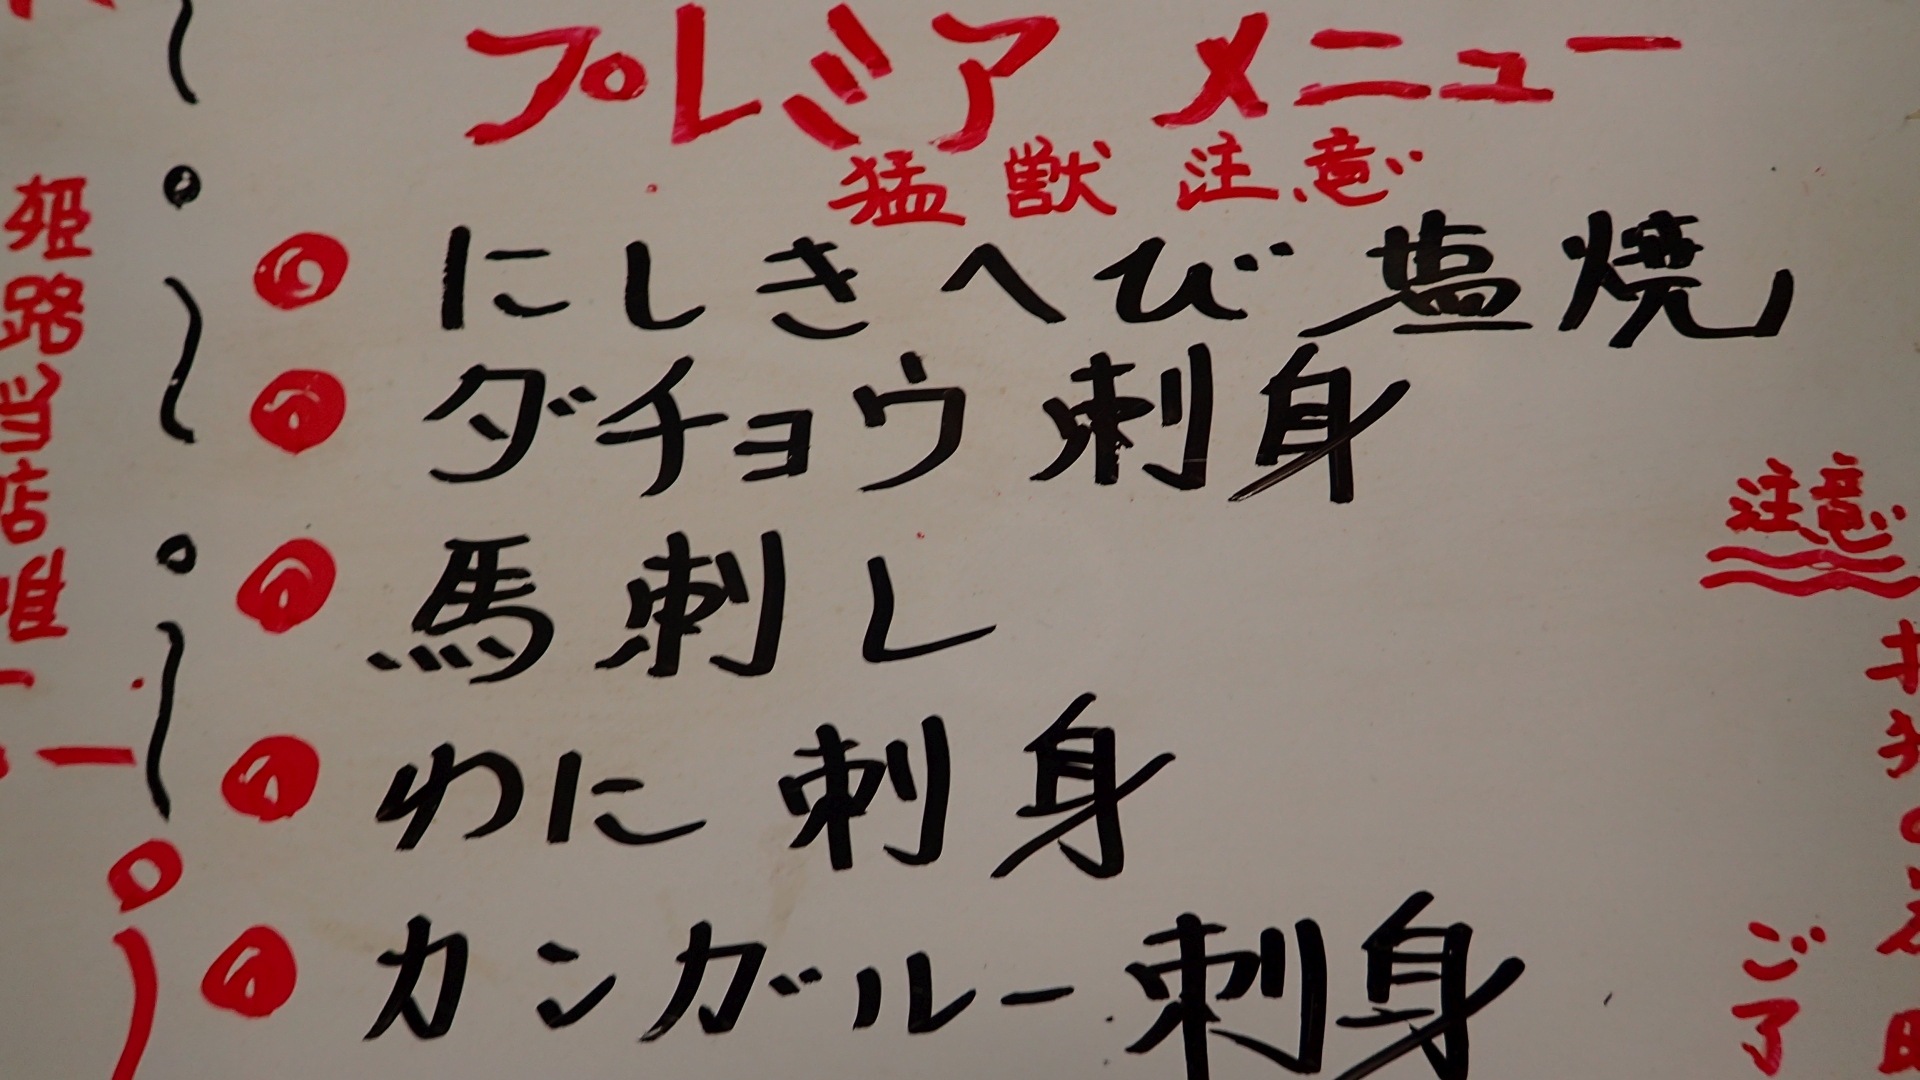 プレミア メニュー
猛獣注意
にしきへび塩焼
ダチョウ刺身
馬刺し
わに刺身
カンガルー刺身
注意
ご了
姫路当店唯一